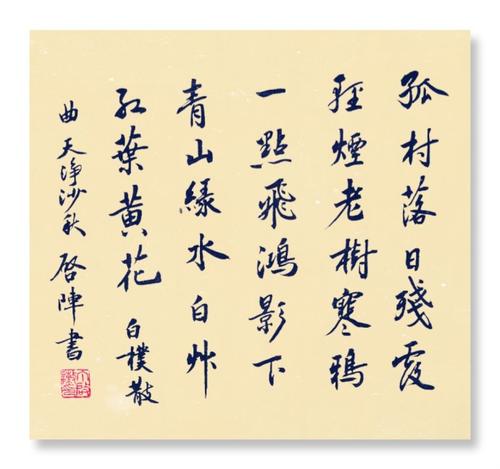 孤村落日殘霞
輕煙老樹寒鴉
一點飛鴻影下
青山綠水白艸
紅葉黃花 白樸散
曲天淨沙秋 啓陣書